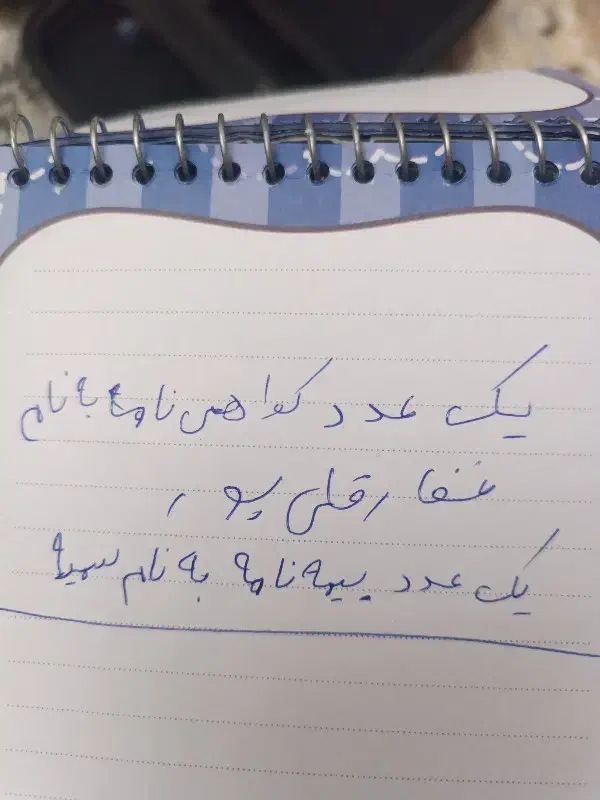 یک عدد گواهی نامه به نام
غفار قلی پور
یک عدد بیمه نامه به نام سمیه